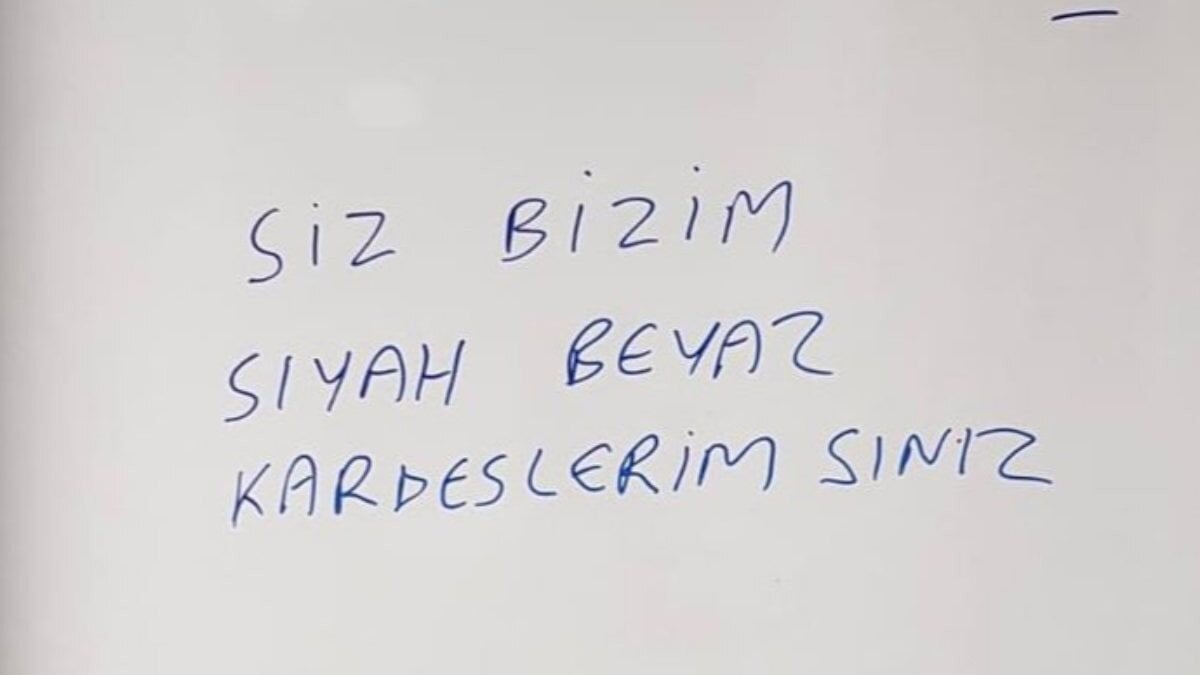 SİZ BİZİM
SIYAH BEYAZ
KARDESLERİM SINIZ